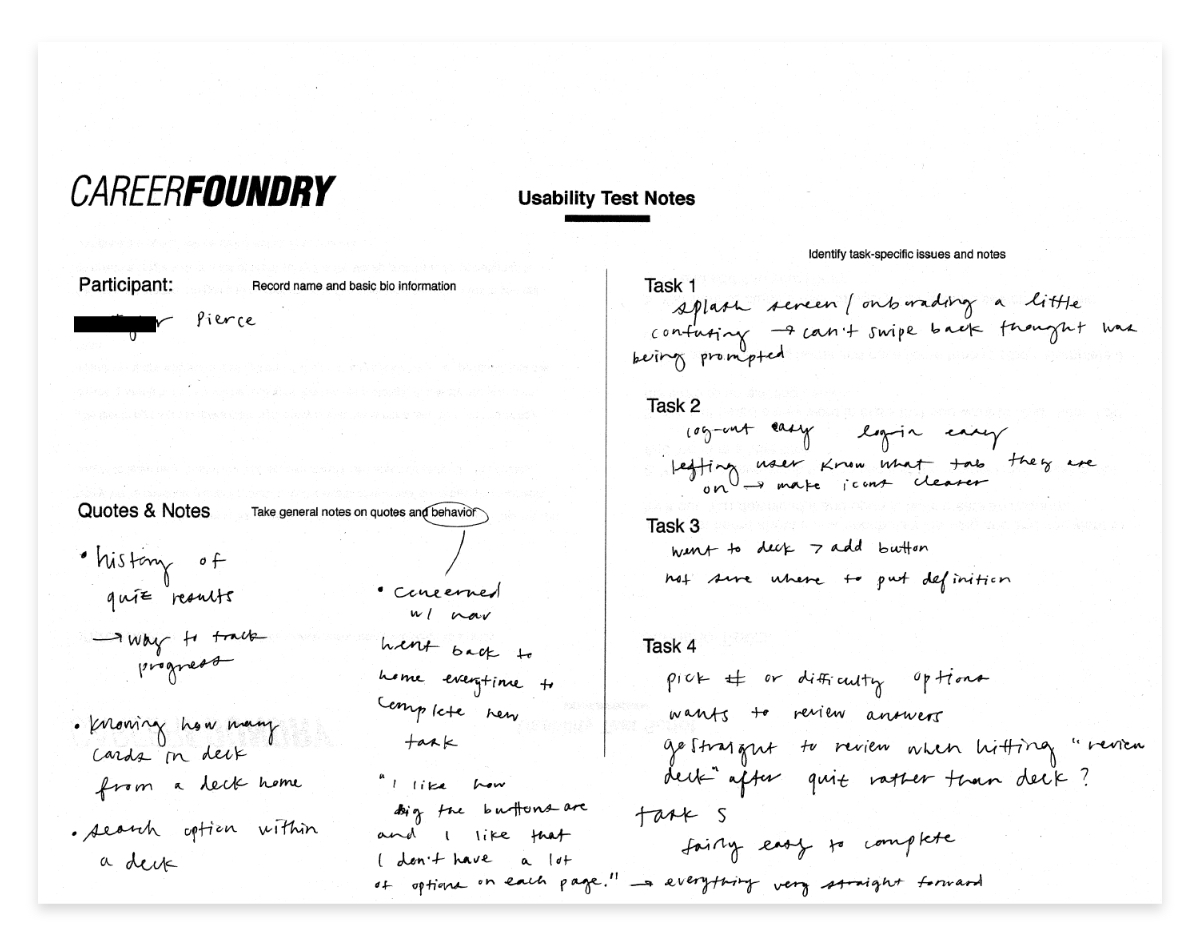 CAREERFOUNDRY
Usability Test Notes
Participant:
Record name and basic bio information
Pierce
Quotes & Notes
Take general notes on quotes and behavior
• history of
quiz results
→ way to track
progress
• knowing how many
cards in deck
from a deck home
• search option within
a deck
• concerned
w/ nav
went back to
home everytime to
complete new
task
"I like how
big the buttons are
and I like that
I don't have a lot
of options on each page." → everything very straight forward
Identify task-specific issues and notes
Task 1
splash screen / onborading a little
confusing → can't swipe back thought was
being prompted
Task 2
log-out easy login easy
letting user know what tab they are
on → make icons clearer
Task 3
went to deck > add button
not sure where to put definition
Task 4
pick # or difficulty options
wants to review answers
go straight to review when hitting "review
deck" after quiz rather than deck?
task 5
fairly easy to complete